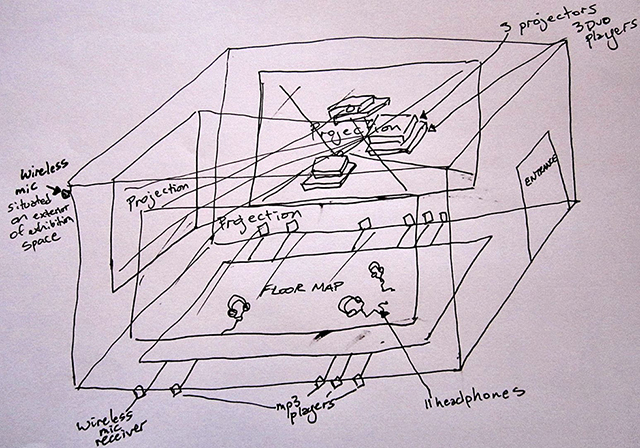 3 projectors
3 DVD
players
Projection
Wireless
mic
situated
on exterior
of exhibition
space
Projection
Projection
ENTRANCE
FLOOR MAP
wireless
mic
receiver
mp3
players
11 headphones